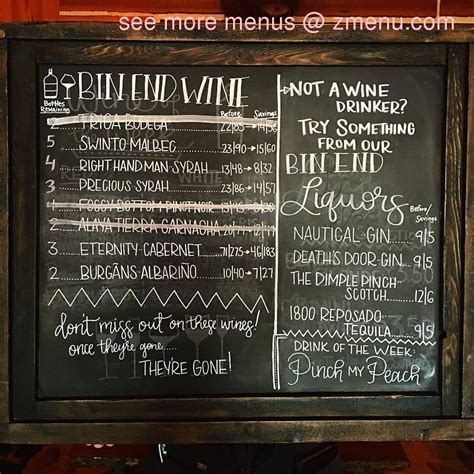 see more menus @ zmenu.com
BIN END WINE
Bottles Remaining
Before
Savings
2 TRIGA BODEGA 22|85→14|56
5 SWINTO MALBEC 23|90→15|60
4 RIGHT HAND MAN SYRAH 12|48→8|32
3 PRECIOUS SYRAH 23|86→14|57
1 FOGGY BOTTOM PINOT NOIR 13|45→8|30
2 ALAYA TIERRA GARNACHA 20|79→13|51
3 ETERNITY CABERNET 71|275→46|183
2 BURGÁNS ALBARIÑO 10|40→7|27
don't miss out on these wines!
once they're gone.....
THEY'RE GONE!
NOT A WINE
DRINKER?
TRY SOMETHING
FROM OUR
BIN END
Liquors
Before/
Savings
NAUTICAL GIN 9|5
DEATH'S DOOR GIN 9|5
THE DIMPLE PINCH
SCOTCH 12|6
1800 REPOSADO
TEQUILA 9|5
DRINK OF THE WEEK:
Pinch MY Peach